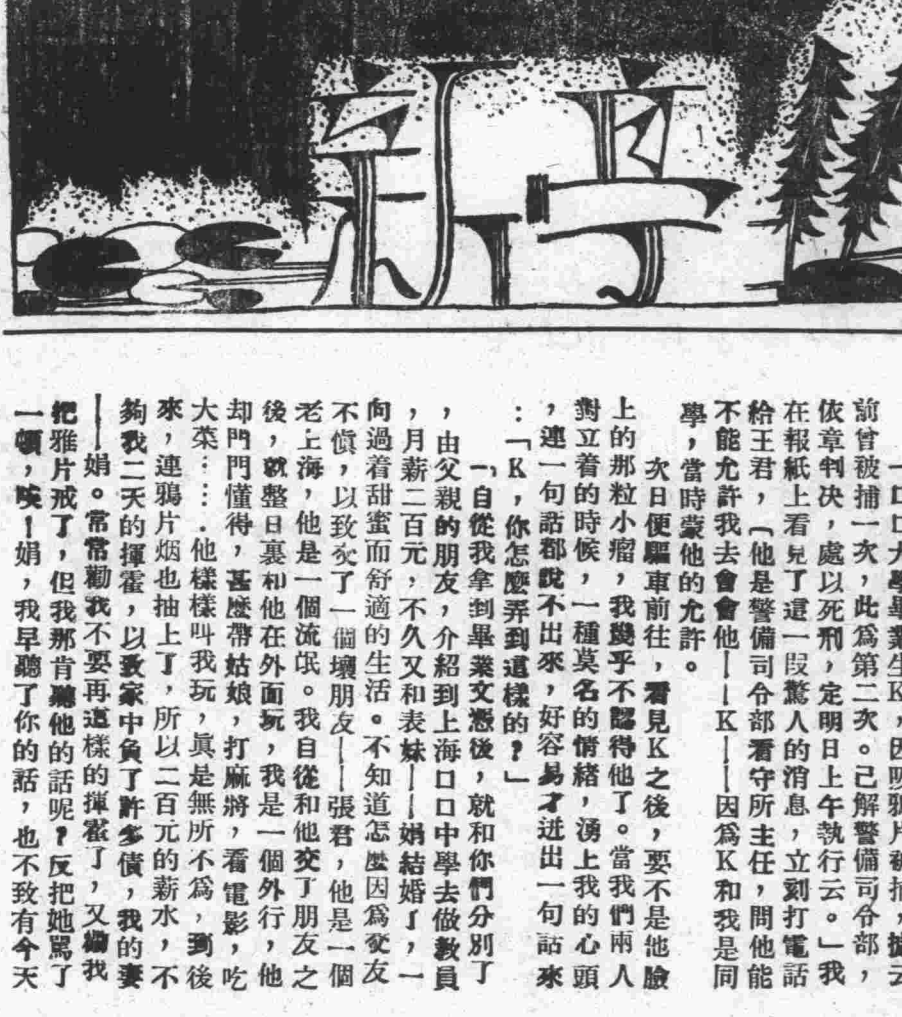 大學畢業生K，因吸鴉片被捕，據云
前曾被捕一次，此爲第二次。已解警備司令部，
依章判决，處以死刑，定明日上午執行云。」我
在報紙上看見了這一段驚人的消息，立刻打電話
給王君，（他是警備司令部看守所主任，問他能
不能允許我去會會他——K——因爲K和我是同
學，當時蒙他的允許。
次日便驅車前往，看見K之後，要不是他臉
上的那粒小瘤，我幾乎不認得他了。當我們兩人
對立着的時候，一種莫名的情緒，湧上我的心頭
，連一句話都說不出來，好容易才迸出一句話來
：「K，你怎麽弄到這樣的？」
「自從我拿到畢業文憑後，就和你們分別了
，由父親的朋友，介紹到上海口口中學去做教員
，月薪二百元，不久又和表妹——娟結婚了，一
向過着甜蜜而舒適的生活。不知道怎麽因爲交友
不愼，以致交了一個壞朋友——張君，他是一個
老上海，他是一個流氓。我自從和他交了朋友之
後，就整日裏和他在外面玩，我是一個外行，他
却門門懂得，甚麽帶姑娘，打麻將，看電影，吃
大菜……．他樣樣叫我玩，眞是無所不爲，到後
來，連鴉片烟也抽上了，所以二百元的薪水，不
夠我二天的揮霍，以致家中負了許多債，我的妻
——娟。常常勸我不要再這樣的揮霍了，又勸我
把雅片戒了，但我那肯聽他的話呢？反把她罵了
一頓，唉！娟，我早聽了你的話，也不致有今天